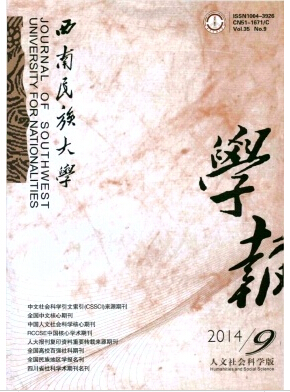 ISSN1004-3926
CN51-1671/C
Vol.35 No.9
JOURNAL OF SOUTHWEST
UNIVERSITY FOR NATIONALITIES
西南民族大学
學報
中文社会科学引文索引(CSSCI)来源期刊
全国中文核心期刊
中国人文社会科学核心期刊
RCCSE中国核心学术期刊
人大报刊复印资料重要转载来源期刊
全国高校百强社科期刊
全国民族地区学报名刊
四川省社科学术期刊名刊
2014/9
人文社会科学版
Humanities and Social Science